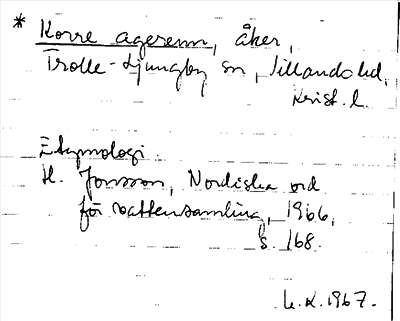 * Korre ageren, åker,
Trolle-Ljungby sn, Villands hd,
Krist. l.
Etymologi.
H. Jonsson, Nordiska ord
för vattensamling, 1966,
s. 168.
L.K. 1967.